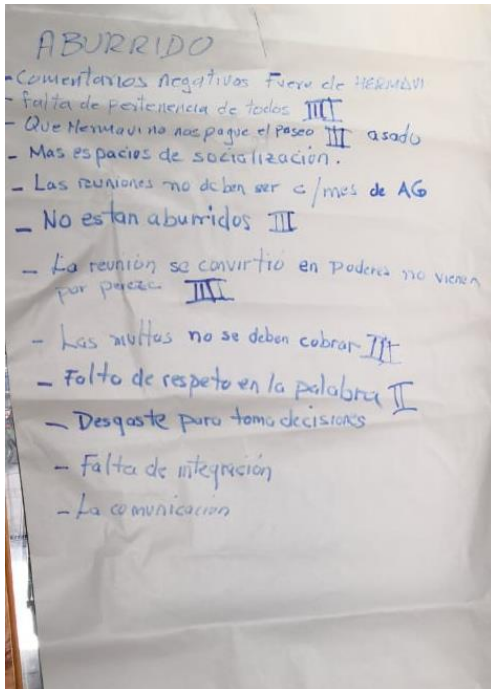 ABURRIDO
- Comentarios negativos Fuera de HERMAVI
- falta de pertenencia de todos IIII
- Que Hermavi no nos pague el Paseo III asado
- Mas espacios de socialización.
- Las reuniones no deben ser c/mes de AG
- No estan aburridos III
- La reunión se convirtió en Poderes no vienen
por pereza IIII
- Las multas no se deben cobrar III
- Falta de respeto en la palabra II
- Desgaste para toma decisiones
- Falta de integración
- La comunicación